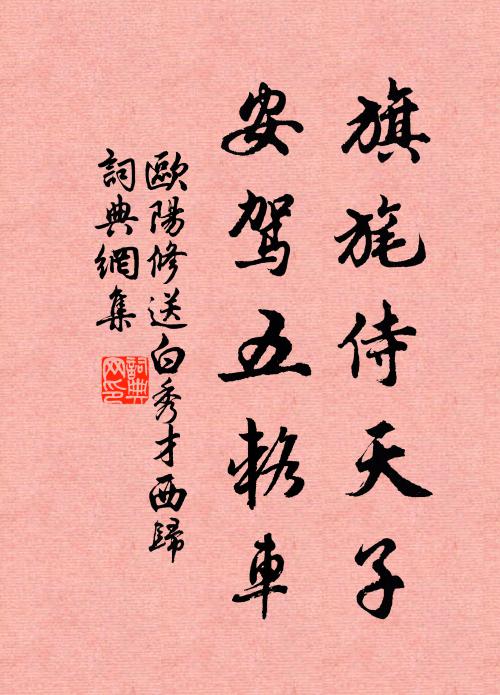 旗旄侍天子
安駕五輅車
歐陽修送白秀才西歸
詞典網集
詞典網印